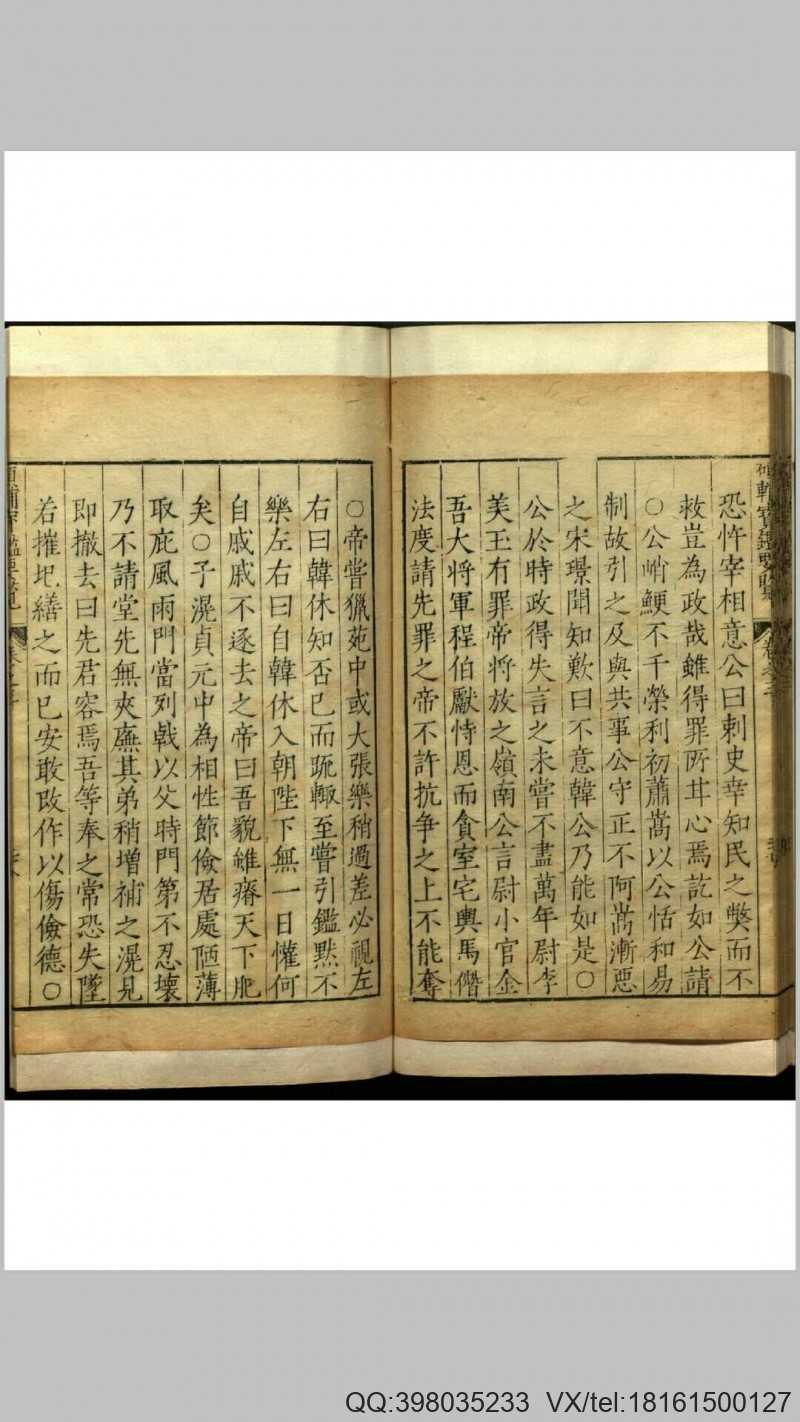 恐忤宰相意公曰刺史幸知民之弊而不
救豈為政哉雖得罪所甘心焉訖如公請
○公峭鯁不干榮利初蕭嵩以公恬和易
制故引之及與共事公守正不阿嵩漸惡
之宋璟聞知歎曰不意韓公乃能如是○
公於時政得失言之未嘗不盡萬年尉李
美玉有罪帝將放之嶺南公言尉小官金
吾大將軍程伯獻恃恩而貪室宅輿馬僭
法度請先罪之帝不許抗争之上不能奪
○帝嘗獵苑中或大張樂稍過差必視左
右曰韓休知否已而䟽輙至嘗引鑑黙不
樂左右曰自韓休入朝陛下無一日懽何
自戚戚不逐去之帝曰吾貌雖瘠天下肥
矣○子滉貞元中為相性節儉居處陋薄
取庇風雨門當列㦸以父時門第不忍壞
乃不請堂先無夾廡其弟稍增補之滉見
即撤去曰先君容焉吾等奉之常恐失墜
若摧圮繕之而已安敢改作以傷儉德○
QQ:398035233 VX/tel:18161500127